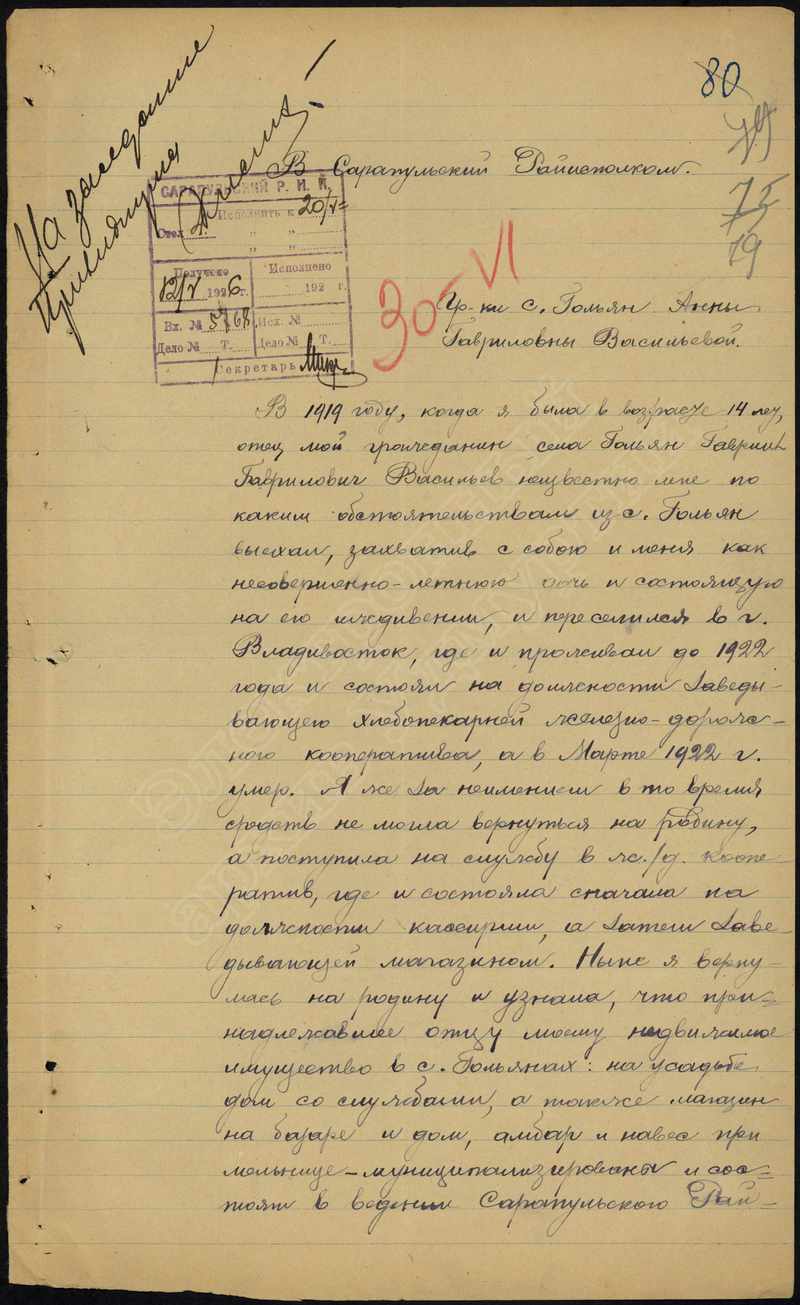 80
79
75
19
На заседание
Президиума
В Сарапульский Райисполком.
САРАПУЛЬСКИЙ Р. И. К.
Исполнить к 20/V
Отд.
" "
" "
Получено
Исполнено
12/V 1926 г.
192 г.
Вх. № 5768
Исх. №
Дело № Т.
Дело № Т.
Секретарь
30-VI
Гр-ки с. Гольян Анны
Гавриловны Васильевой.
В 1919 году, когда я была в возрасте 14 лет,
отец мой гражданин села Гольян Гавриил
Гаврилович Васильев неизвестно мне по
каким обстоятельствам из с. Гольян
выехал, захватив с собою и меня как
несовершенно-летнюю дочь и состоящую
на его иждивении, и переселился в г.
Владивосток, где и проживал до 1922
года и состоял на должности Заведы-
вающего хлебопекарней железно-дорож-
ного кооператива, а в Марте 1922 г.
умер. Я же за неимением в то время
средств не могла вернуться на родину,
а поступила на службу в ж./д. коопе-
ратив, где и состояла сначала на
должности кассирши, а затем Заве-
дывающей магазином. Ныне я верну-
лась на родину и узнала, что при-
надлежавшее отцу моему недвижимое
имущество в с. Гольянах: на усадьбе
дом со службами, а также магазин
на базаре и дом, амбар и навес при
мельнице - муниципализированы и сос-
тоят в ведении Сарапульского Рай-